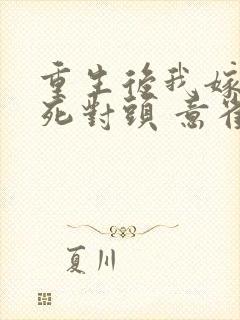 重生後我嫁
死對頭 意
夏川